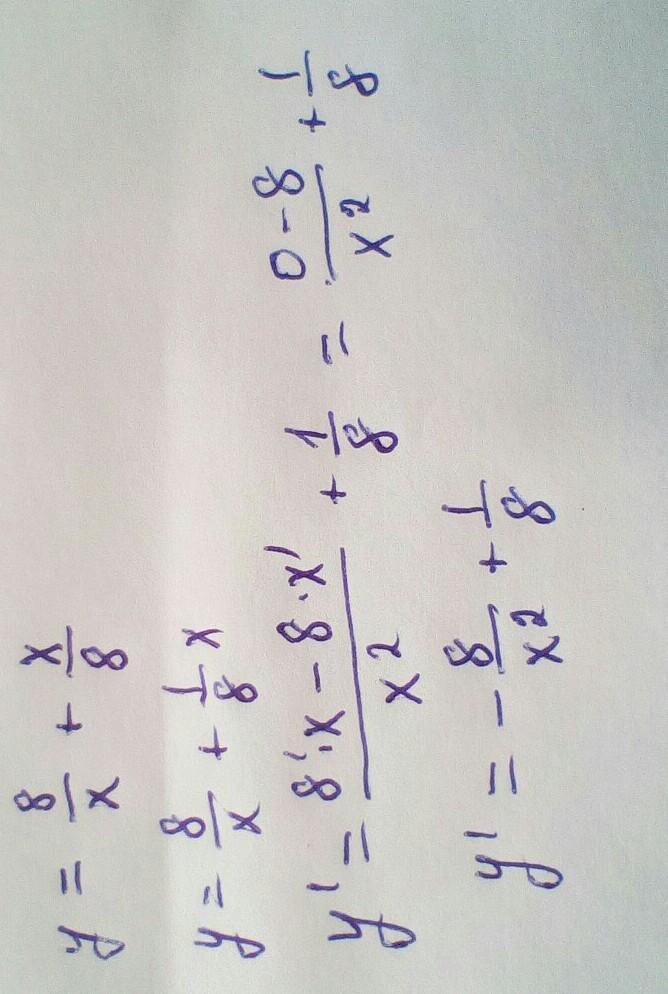 y = 8/x + x/8
y = 8/x + 1/8 x
y' = (8'·x - 8·x')/x² + 1/8 = (0-8)/x² + 1/8
y' = - 8/x² + 1/8